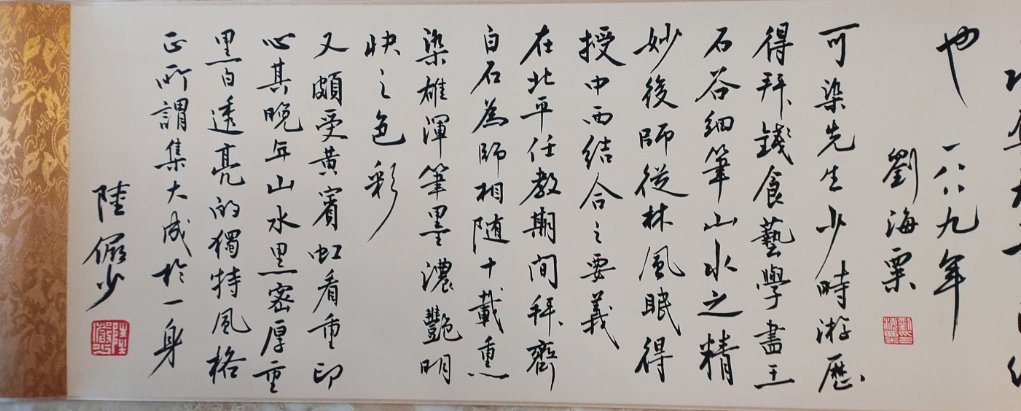 也 一八八九年
劉海粟
可染先生少時游歷
得拜錢食藝學畫王
石谷細筆山水之精
妙後師從林風眠得
授中西結合之要義
在北平任教期间拜齊
白石為師相随十載熏
染雄渾筆墨濃艷明
快之色彩
又頗受黃賓虹看重印
心其晚年山水黑密厚重
黑白透亮的獨特风格
正所謂集大成於一身
陸儼少